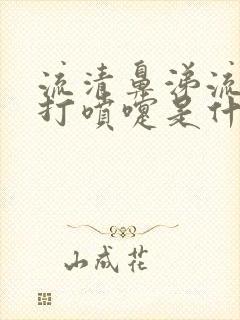 流清鼻涕流
打喷嚏是什
山成花